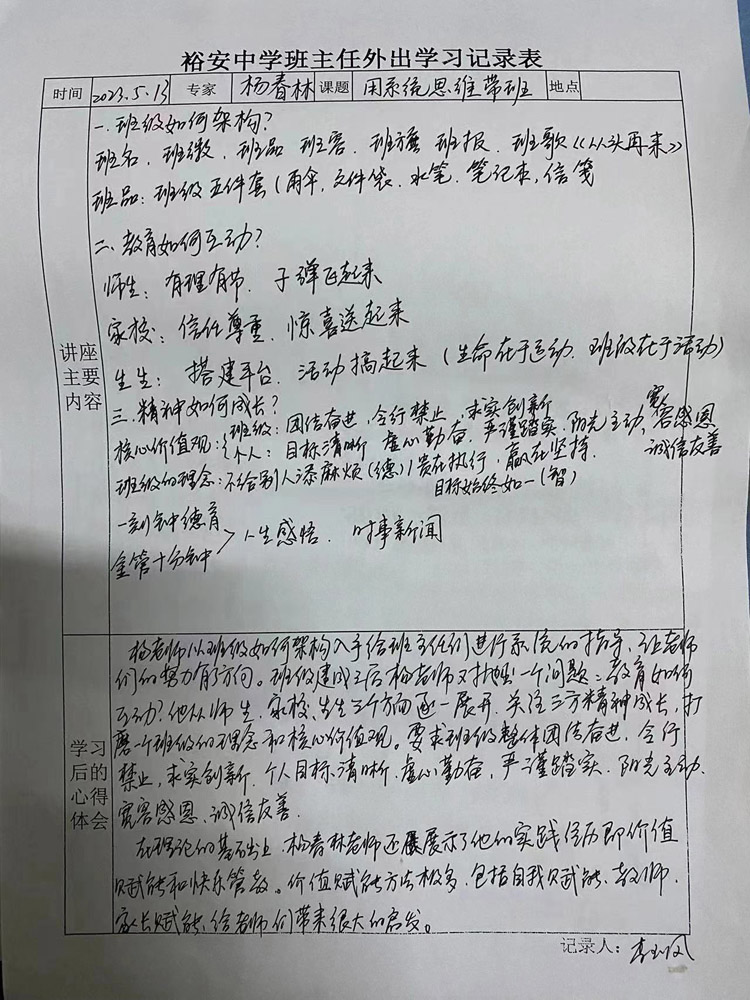 裕安中学班主任外出学习记录表
时间 2023.5.13 专家 杨春林 课题 用系统思维带班 地点
一. 班级如何架构?
班名、班徽、班品 班容、班旗 班报、班歌《从头再来》
班品: 班级五件套(雨伞, 文件袋、水笔、笔记本, 信笺
二、教育如何互动?
师生: 有理有节、子弹飞起来
家校: 信任尊重、惊喜送起来
生生: 搭建平台、活动搞起来(生命在于运动、班级在于活动)
讲座
主要
内容
三.精神如何成长?
核心价值观: 班级: 团结奋进, 令行禁止, 求实创新
个人: 目标清晰 虚心勤奋、严谨踏实、阳光主动、宽容感恩
诚信友善
班级的理念: 不给别人添麻烦(德) 贵在执行, 赢在坚持、
目标始终如一(智)
一刻钟德育
金管十分钟
人生感悟、时事新闻
杨老师以班级如何架构入手给班主任们进行系统的指导、让老师
们的努力有了方向。班级建成之后杨老师又抛出一个问题: 教育如何
互动? 他从师生、家校、生生三个方面逐一展开、关注三方精神成长, 打
磨一个班级的理念和核心价值观。要求班级整体团结奋进, 令行
禁止, 求实创新、个人目标清晰、虚心勤奋, 严谨踏实、阳光主动、
宽容感恩、诚信友善.
学习
后的
心得
体会
在理论的基础上、杨春林老师还展示了他的实践经历即价值
赋能和快乐管教。价值赋能方法极多、包括自我赋能、教师、
家长赋能、给老师们带来很大的启发。
记录人: